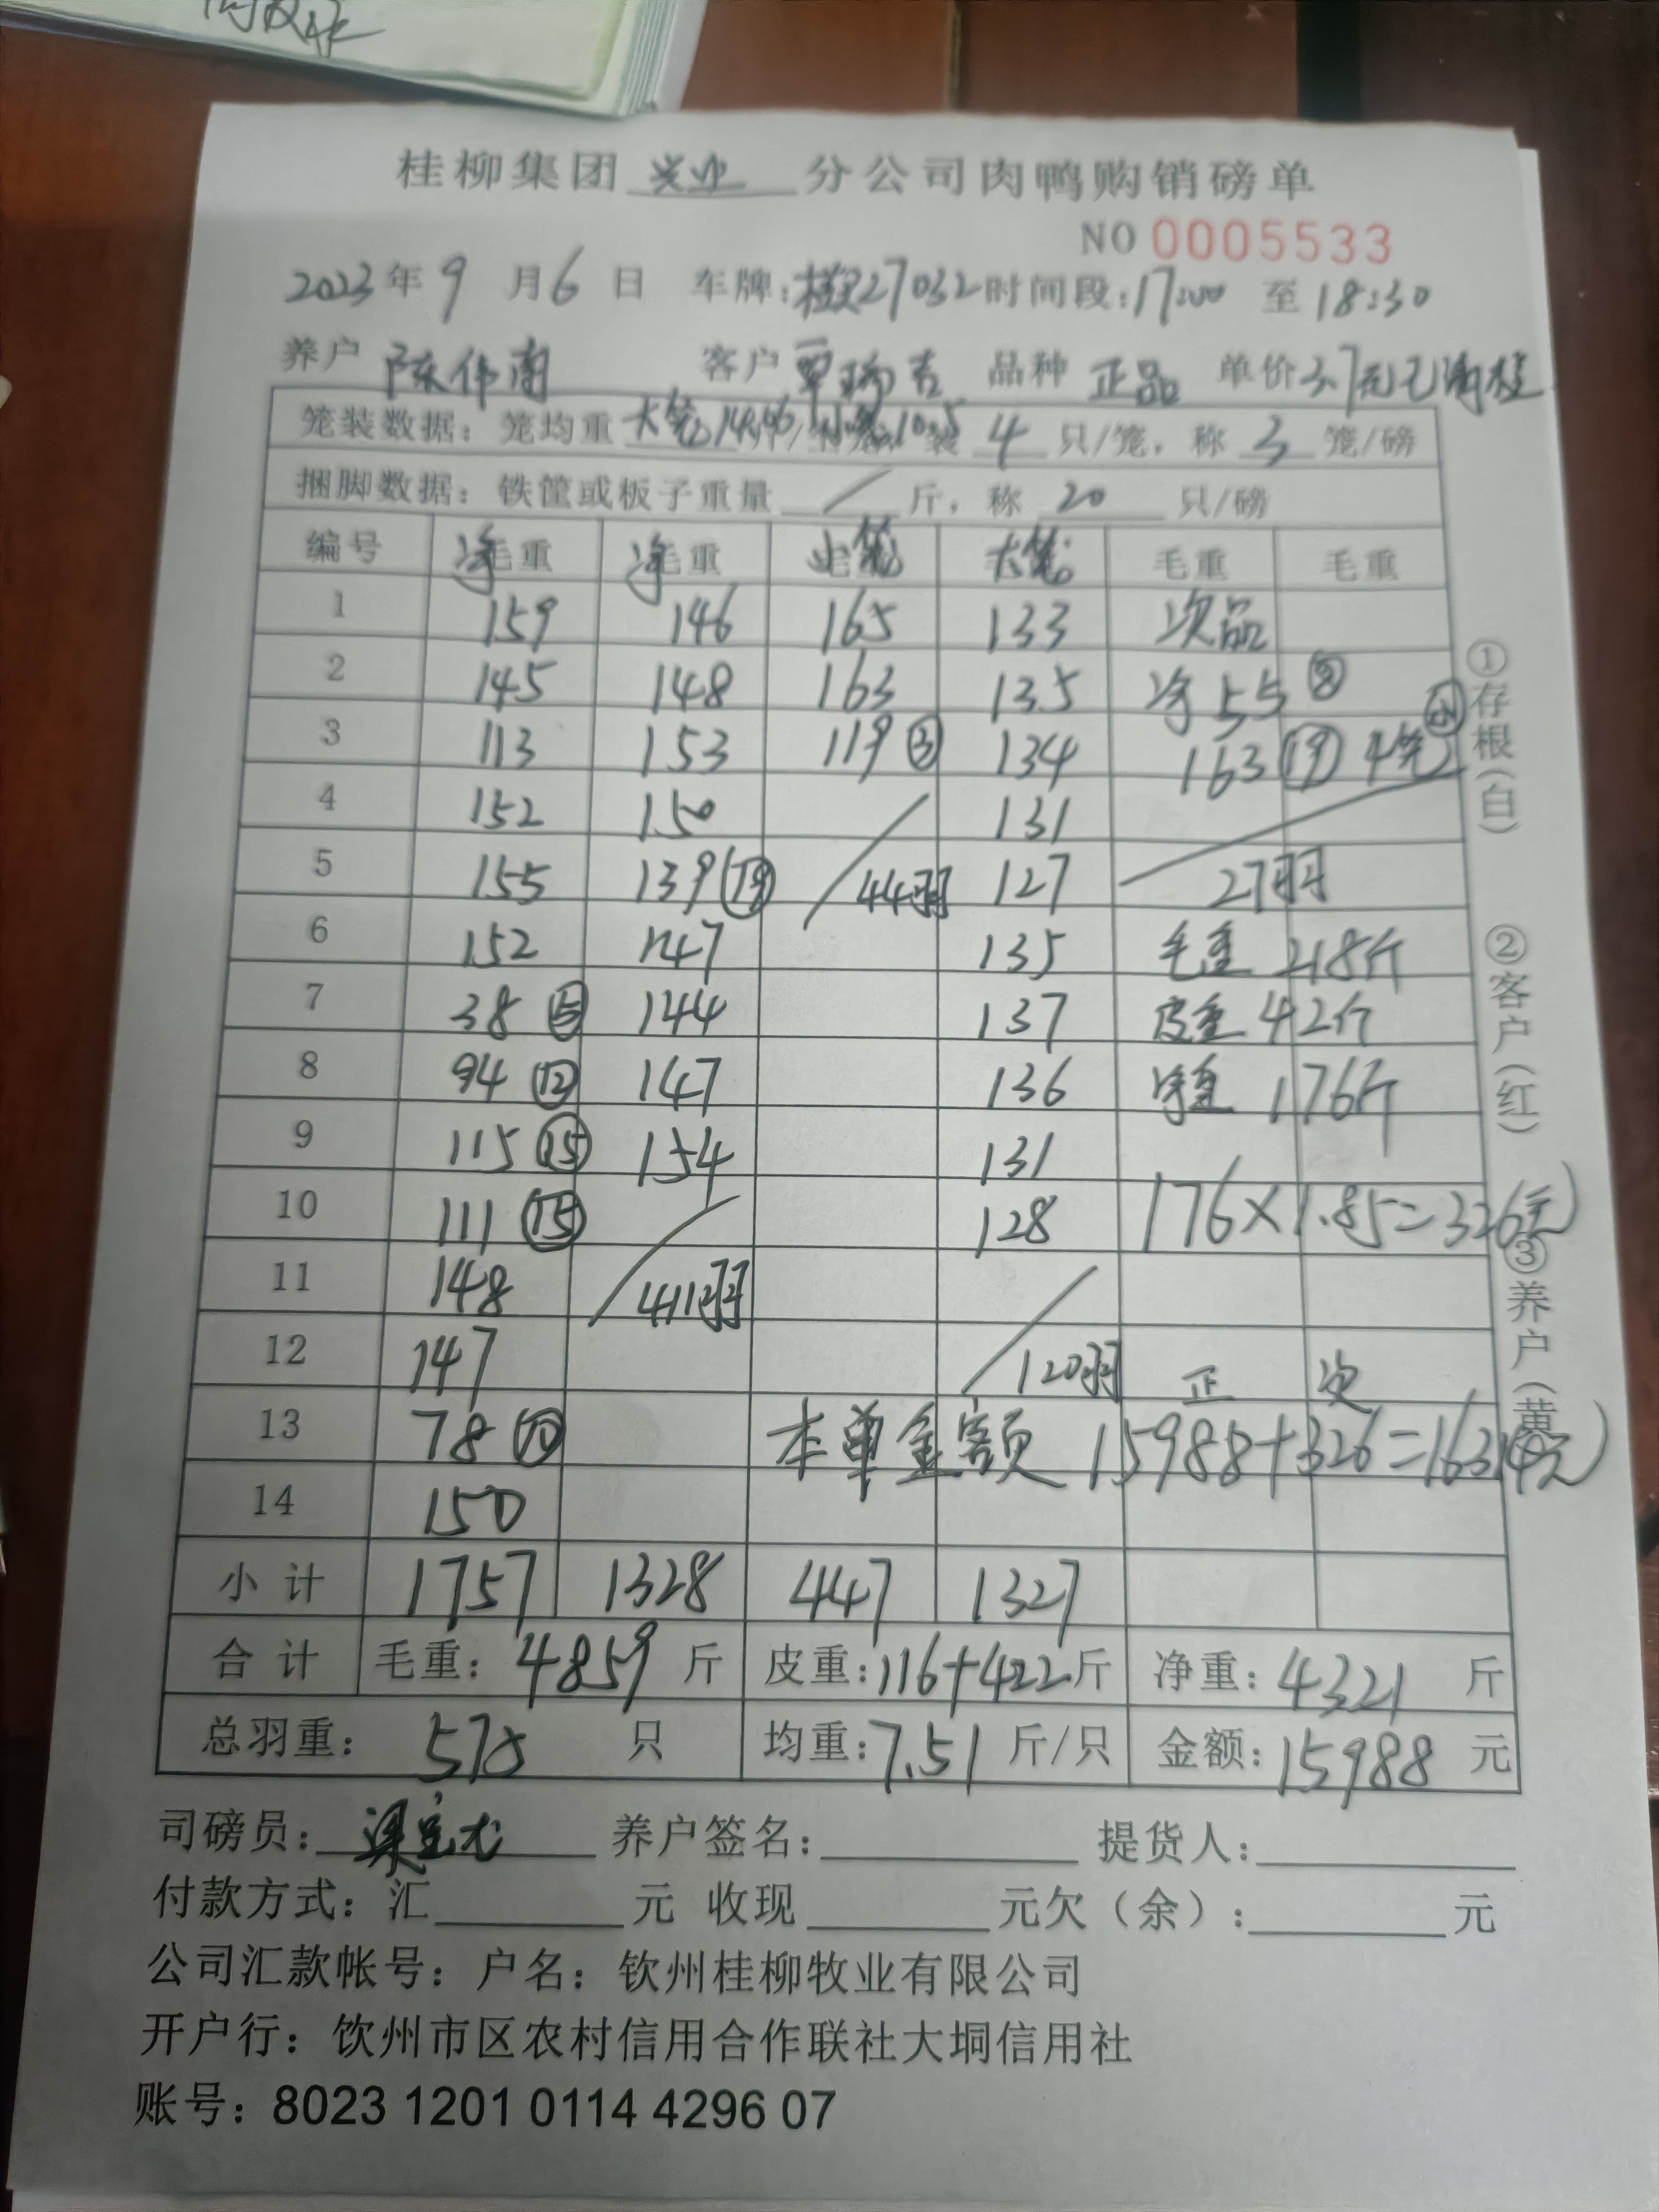 桂柳集团 兴业 分公司肉鸭购销磅单
NO 0005533
2023年9月6日 车牌:桂 27032 时间段:17:00 至 18:30
养户 陈伟南 客户 覃瑞吉 品种 正品 单价 3.7元
笼装数据：笼均重 大笼14.06 小笼10.5 装 4 只/笼，称 3 笼/磅
捆脚数据：铁筐或板子重量 / 斤，称 20 只/磅
编号 净毛重 净毛重 小笼 大笼 毛重 毛重
1 159 146 165 133 次品
2 145 148 163 135 净55 ⑧
3 113 153 119 ③ 134 163 ⑲ 4笼
4 152 150 131
5 155 139 ⑲ 44羽 127 27羽
6 152 147 135 毛重 218斤
7 38 ⑤ 144 137 皮重 42斤
8 94 ⑫ 147 136 净重 176斤
9 115 ⑮ 154 131
10 111 ⑮ 128 176×1.85=326元
11 148 411羽
12 147 120羽 正 次
13 78 ⑩ 本单金额 15988+326=16314元
14 150
小计 1757 1328 447 1327
合计 毛重：4859 斤 皮重：116+422斤 净重：4321 斤
总羽重： 575 只 均重：7.51 斤/只 金额：15988 元
司磅员： 养户签名： 提货人：
付款方式：汇 元 收现 元欠（余）： 元
公司汇款帐号：户名：钦州桂柳牧业有限公司
开户行：钦州市区农村信用合作联社大垌信用社
账号：8023 1201 0114 4296 07
①存根（白）
②客户（红）
③养户（黄）